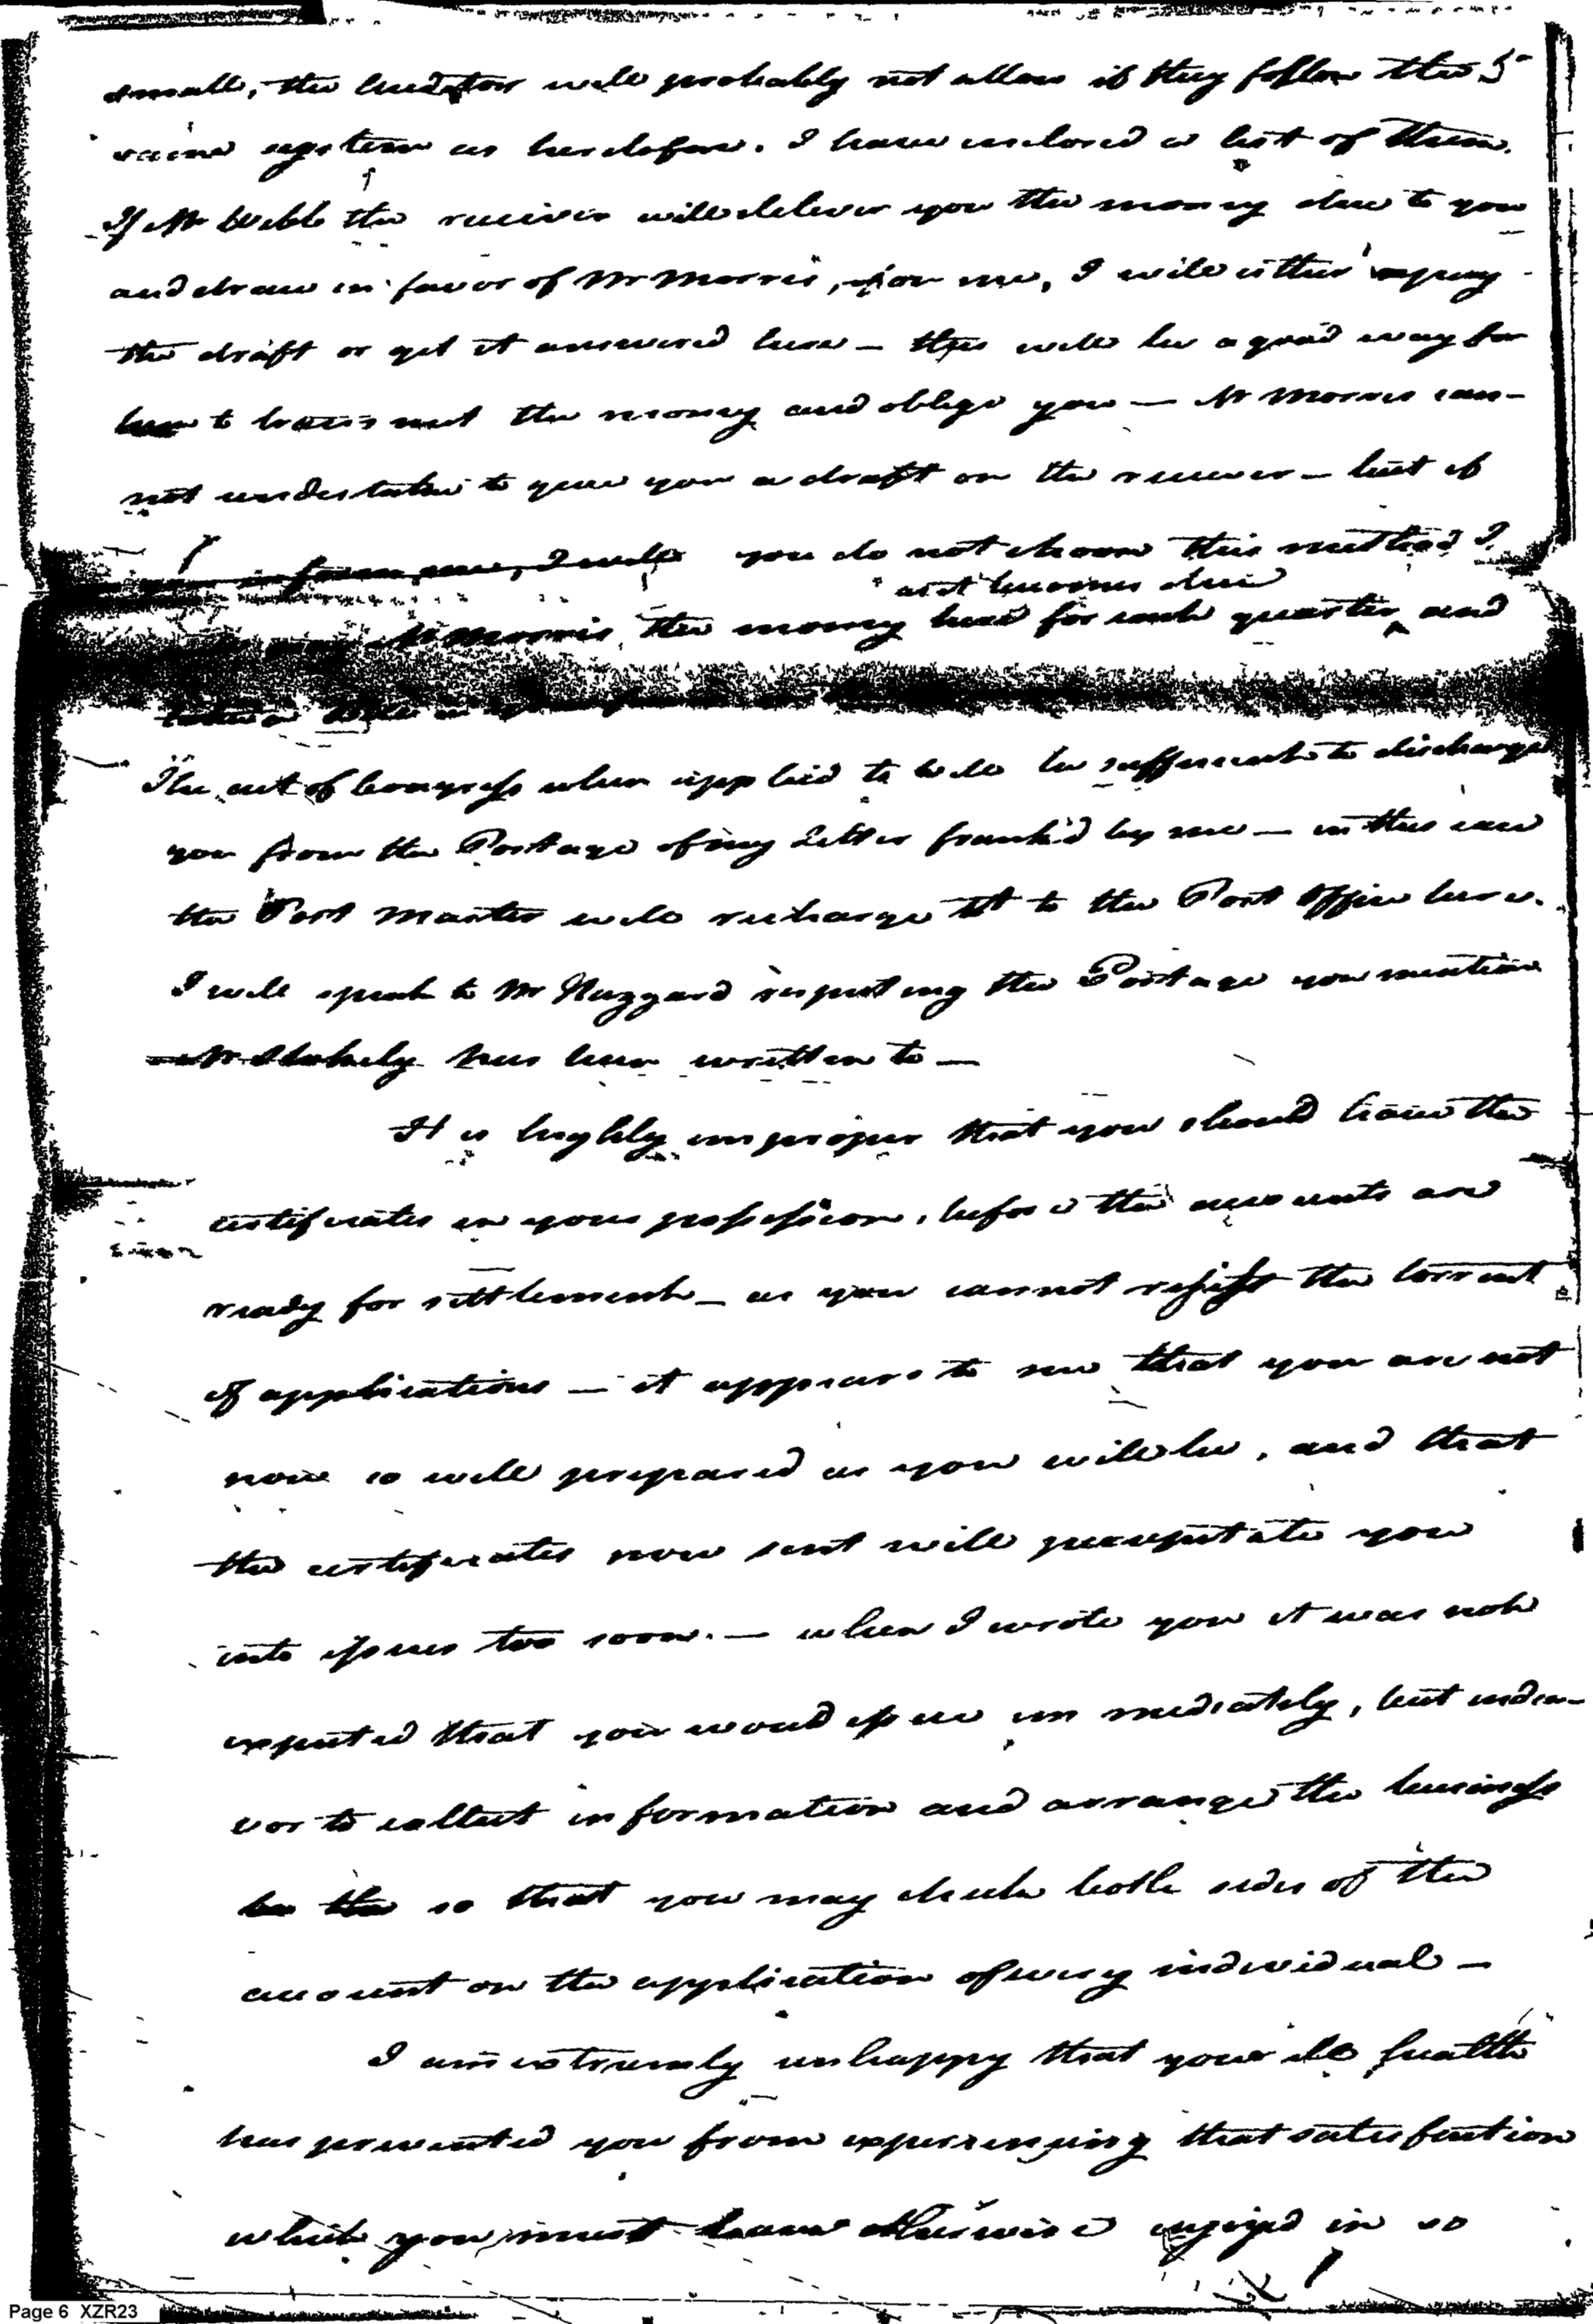 small, the Auditor will probably not allow if they follow the 5
same system as heretofore. I have enclosed a list of them.
If Mr Webb the receiver will deliver you the money due to you
and draw in favor of Mr Morris, or me, I will either pay
the draft or get it answered here — this will be a good way for
him to transmit the money and oblige you — Mr Morris can-
not undertake to give you a draft on the receiver — but if
inform me, I will you do not choose this method I
as it becomes due
Mr Morris, the money here for each quarter and
The act of Congress when applied to will be sufficient to discharge
you from the Postage of any Letter frank'd by me — in this case
the Post Master will recharge it to the Post Office here.
I will speak to Mr Hazzard respecting the Postage you mention
Mr Stokely has been written to —
It is highly improper that you should have the
certificates in your possession, before the accounts are
ready for settlement — as you cannot resist the torrent
of applications — it appears to me that you are not
now so well prepared as you will be, and that
the certificates now sent will precipitate you
into issues too soon. — when I wrote you it was not
expected that you would issue immediately, but endea-
vor to collect information and arrange the business
be the so that you may check both sides of the
account on the application of every individual —
I am extremely unhappy that your ill health
has prevented you from experiencing that satisfaction
which you must have otherwise enjoyed in so
Page 6 XZR23